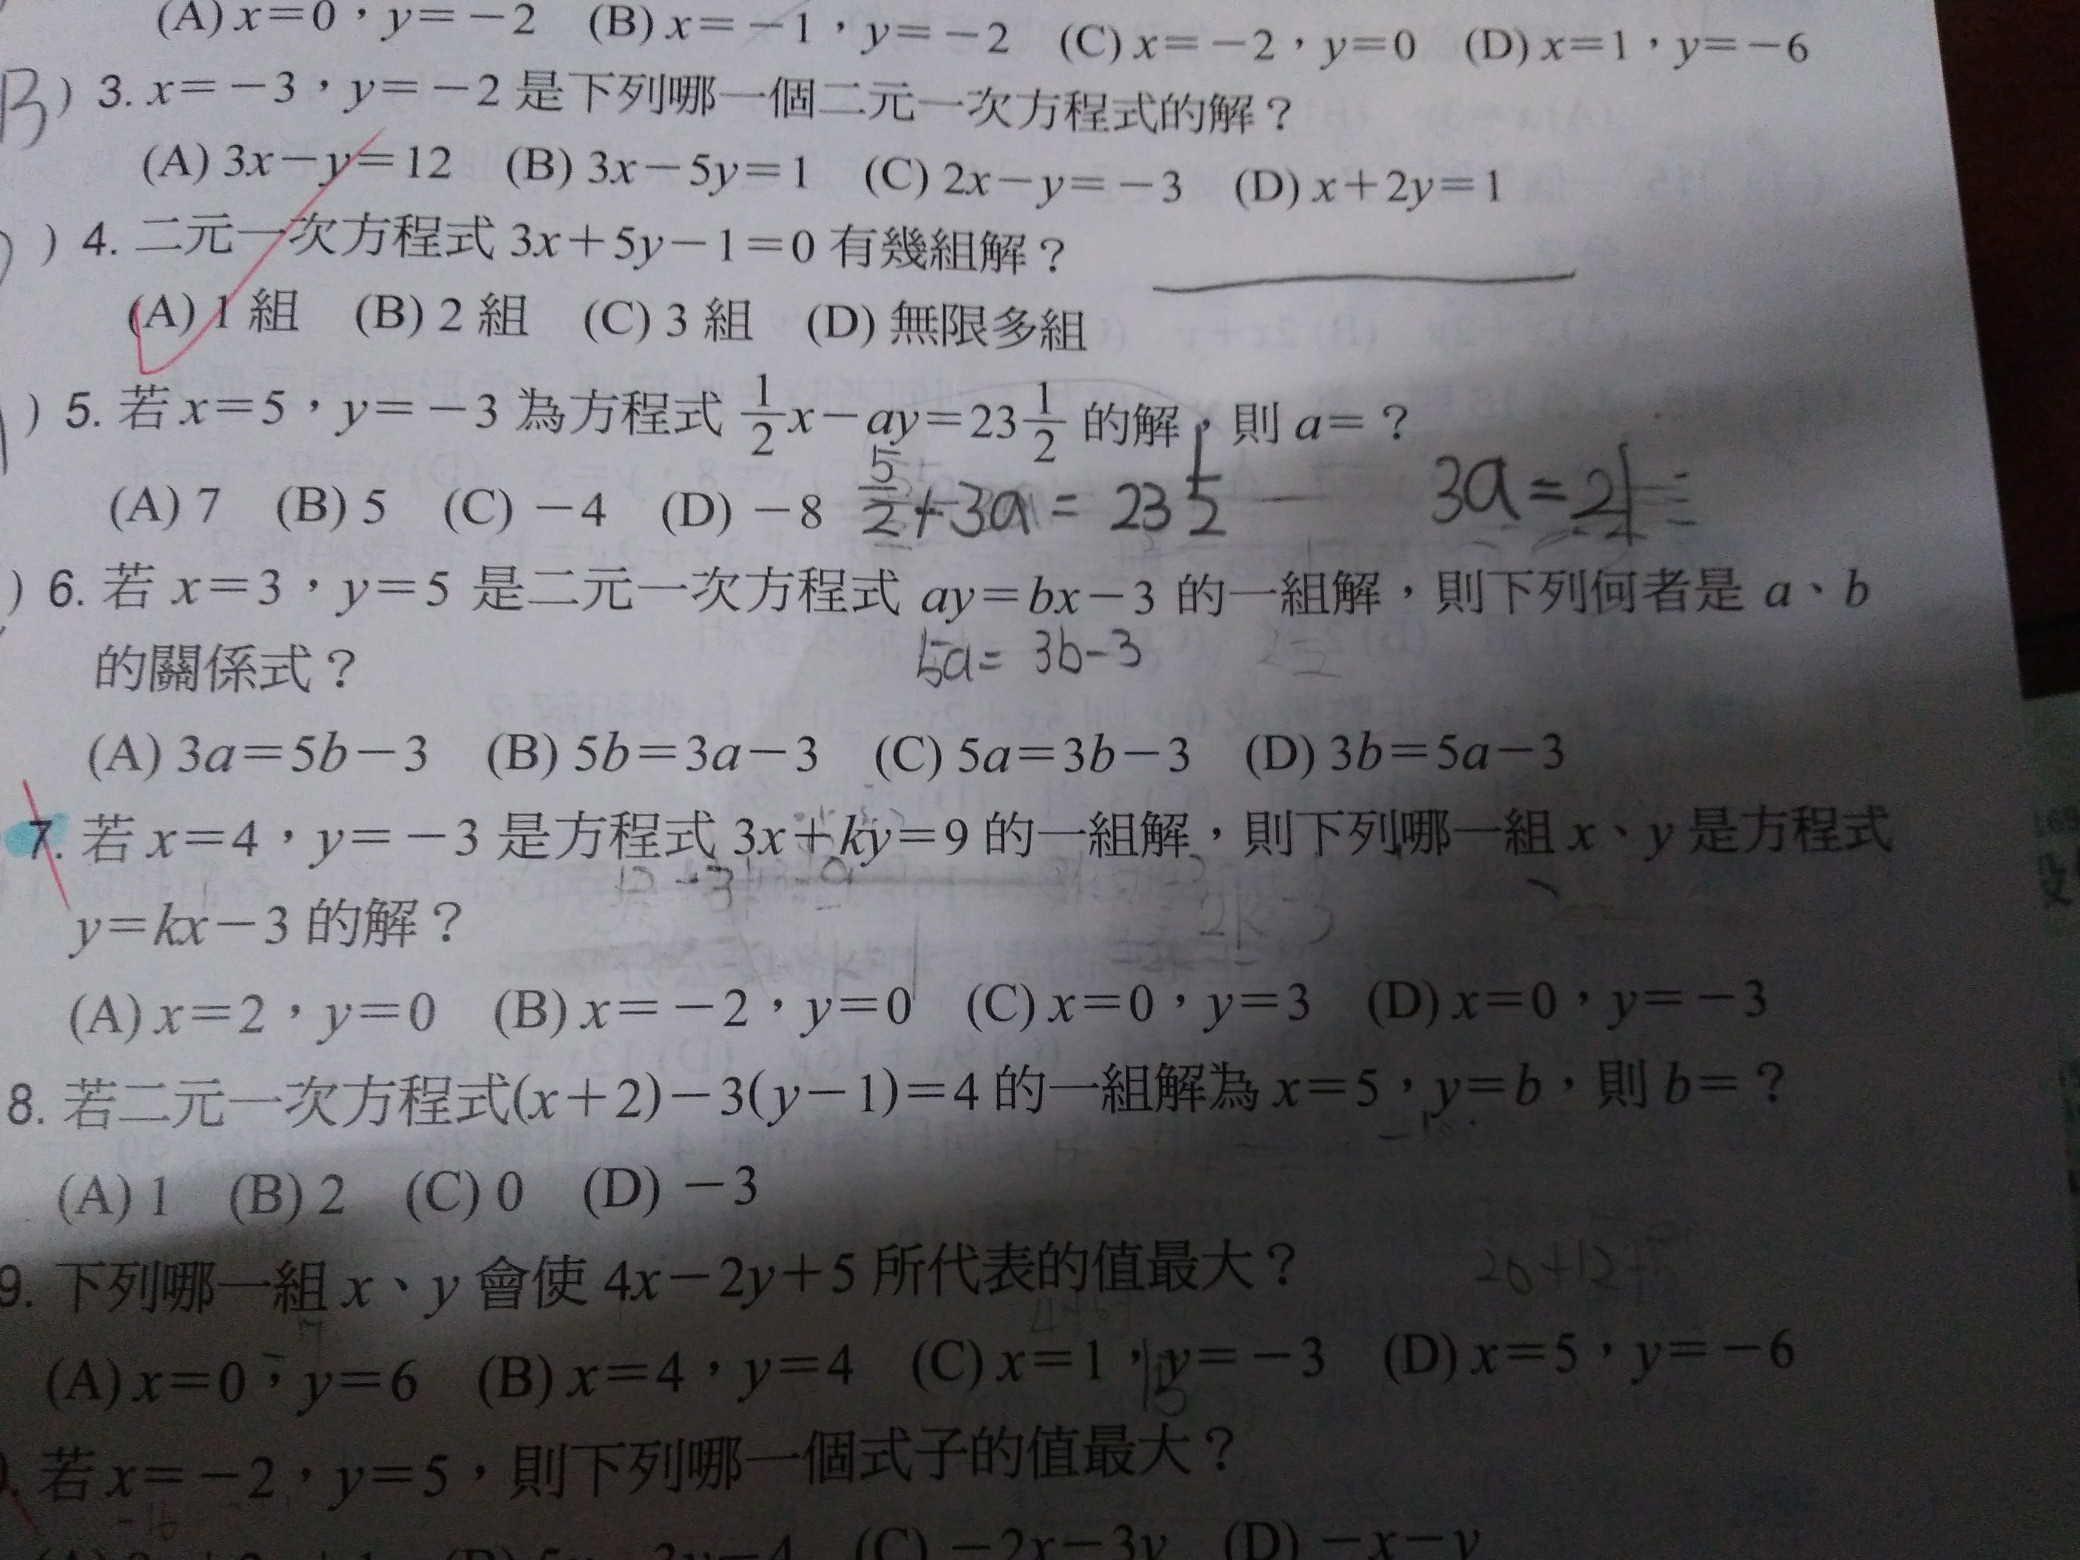 (A) x=0，y=－2 (B) x=－1，y=－2 (C) x=－2，y=0 (D) x=1，y=－6
B) 3. x=－3，y=－2 是下列哪一個二元一次方程式的解？
(A) 3x－y=12 (B) 3x－5y=1 (C) 2x－y=－3 (D) x+2y=1
) 4. 二元一次方程式 3x+5y－1=0 有幾組解？
(A) 1 組 (B) 2 組 (C) 3 組 (D) 無限多組
) 5. 若 x=5，y=－3 為方程式 1/2 x－ay=23 1/2 的解，則 a=？
(A) 7 (B) 5 (C) －4 (D) －8 5/2+3a=23 1/2 3a=21
) 6. 若 x=3，y=5 是二元一次方程式 ay=bx－3 的一組解，則下列何者是 a、b
的關係式？ 5a=3b-3
(A) 3a=5b－3 (B) 5b=3a－3 (C) 5a=3b－3 (D) 3b=5a－3
7. 若 x=4，y=－3 是方程式 3x+ky=9 的一組解，則下列哪一組 x、y 是方程式
y=kx－3 的解？
(A) x=2，y=0 (B) x=－2，y=0 (C) x=0，y=3 (D) x=0，y=－3
8. 若二元一次方程式(x+2)－3(y－1)=4 的一組解為 x=5，y=b，則 b=？
(A) 1 (B) 2 (C) 0 (D) －3
9. 下列哪一組 x、y 會使 4x－2y+5 所代表的值最大？
(A) x=0，y=6 (B) x=4，y=4 (C) x=1，y=－3 (D) x=5，y=－6
. 若 x=－2，y=5，則下列哪一個式子的值最大？
(C) －2x－3y (D) －x－y